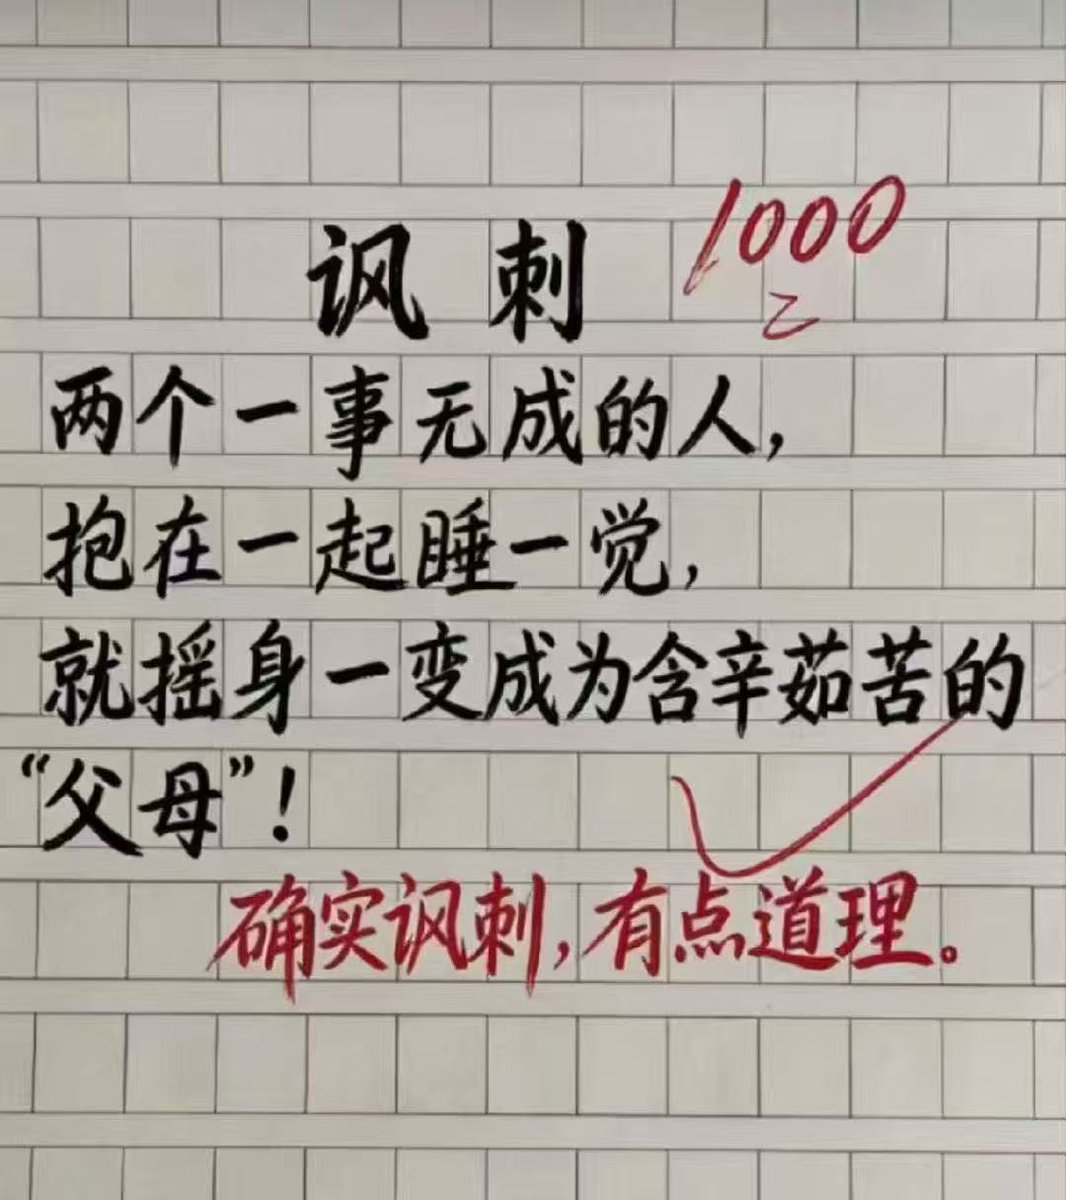 讽刺
1000
两个一事无成的人，
抱在一起睡一觉，
就摇身一变成为含辛茹苦的
“父母”！
确实讽刺，有点道理。